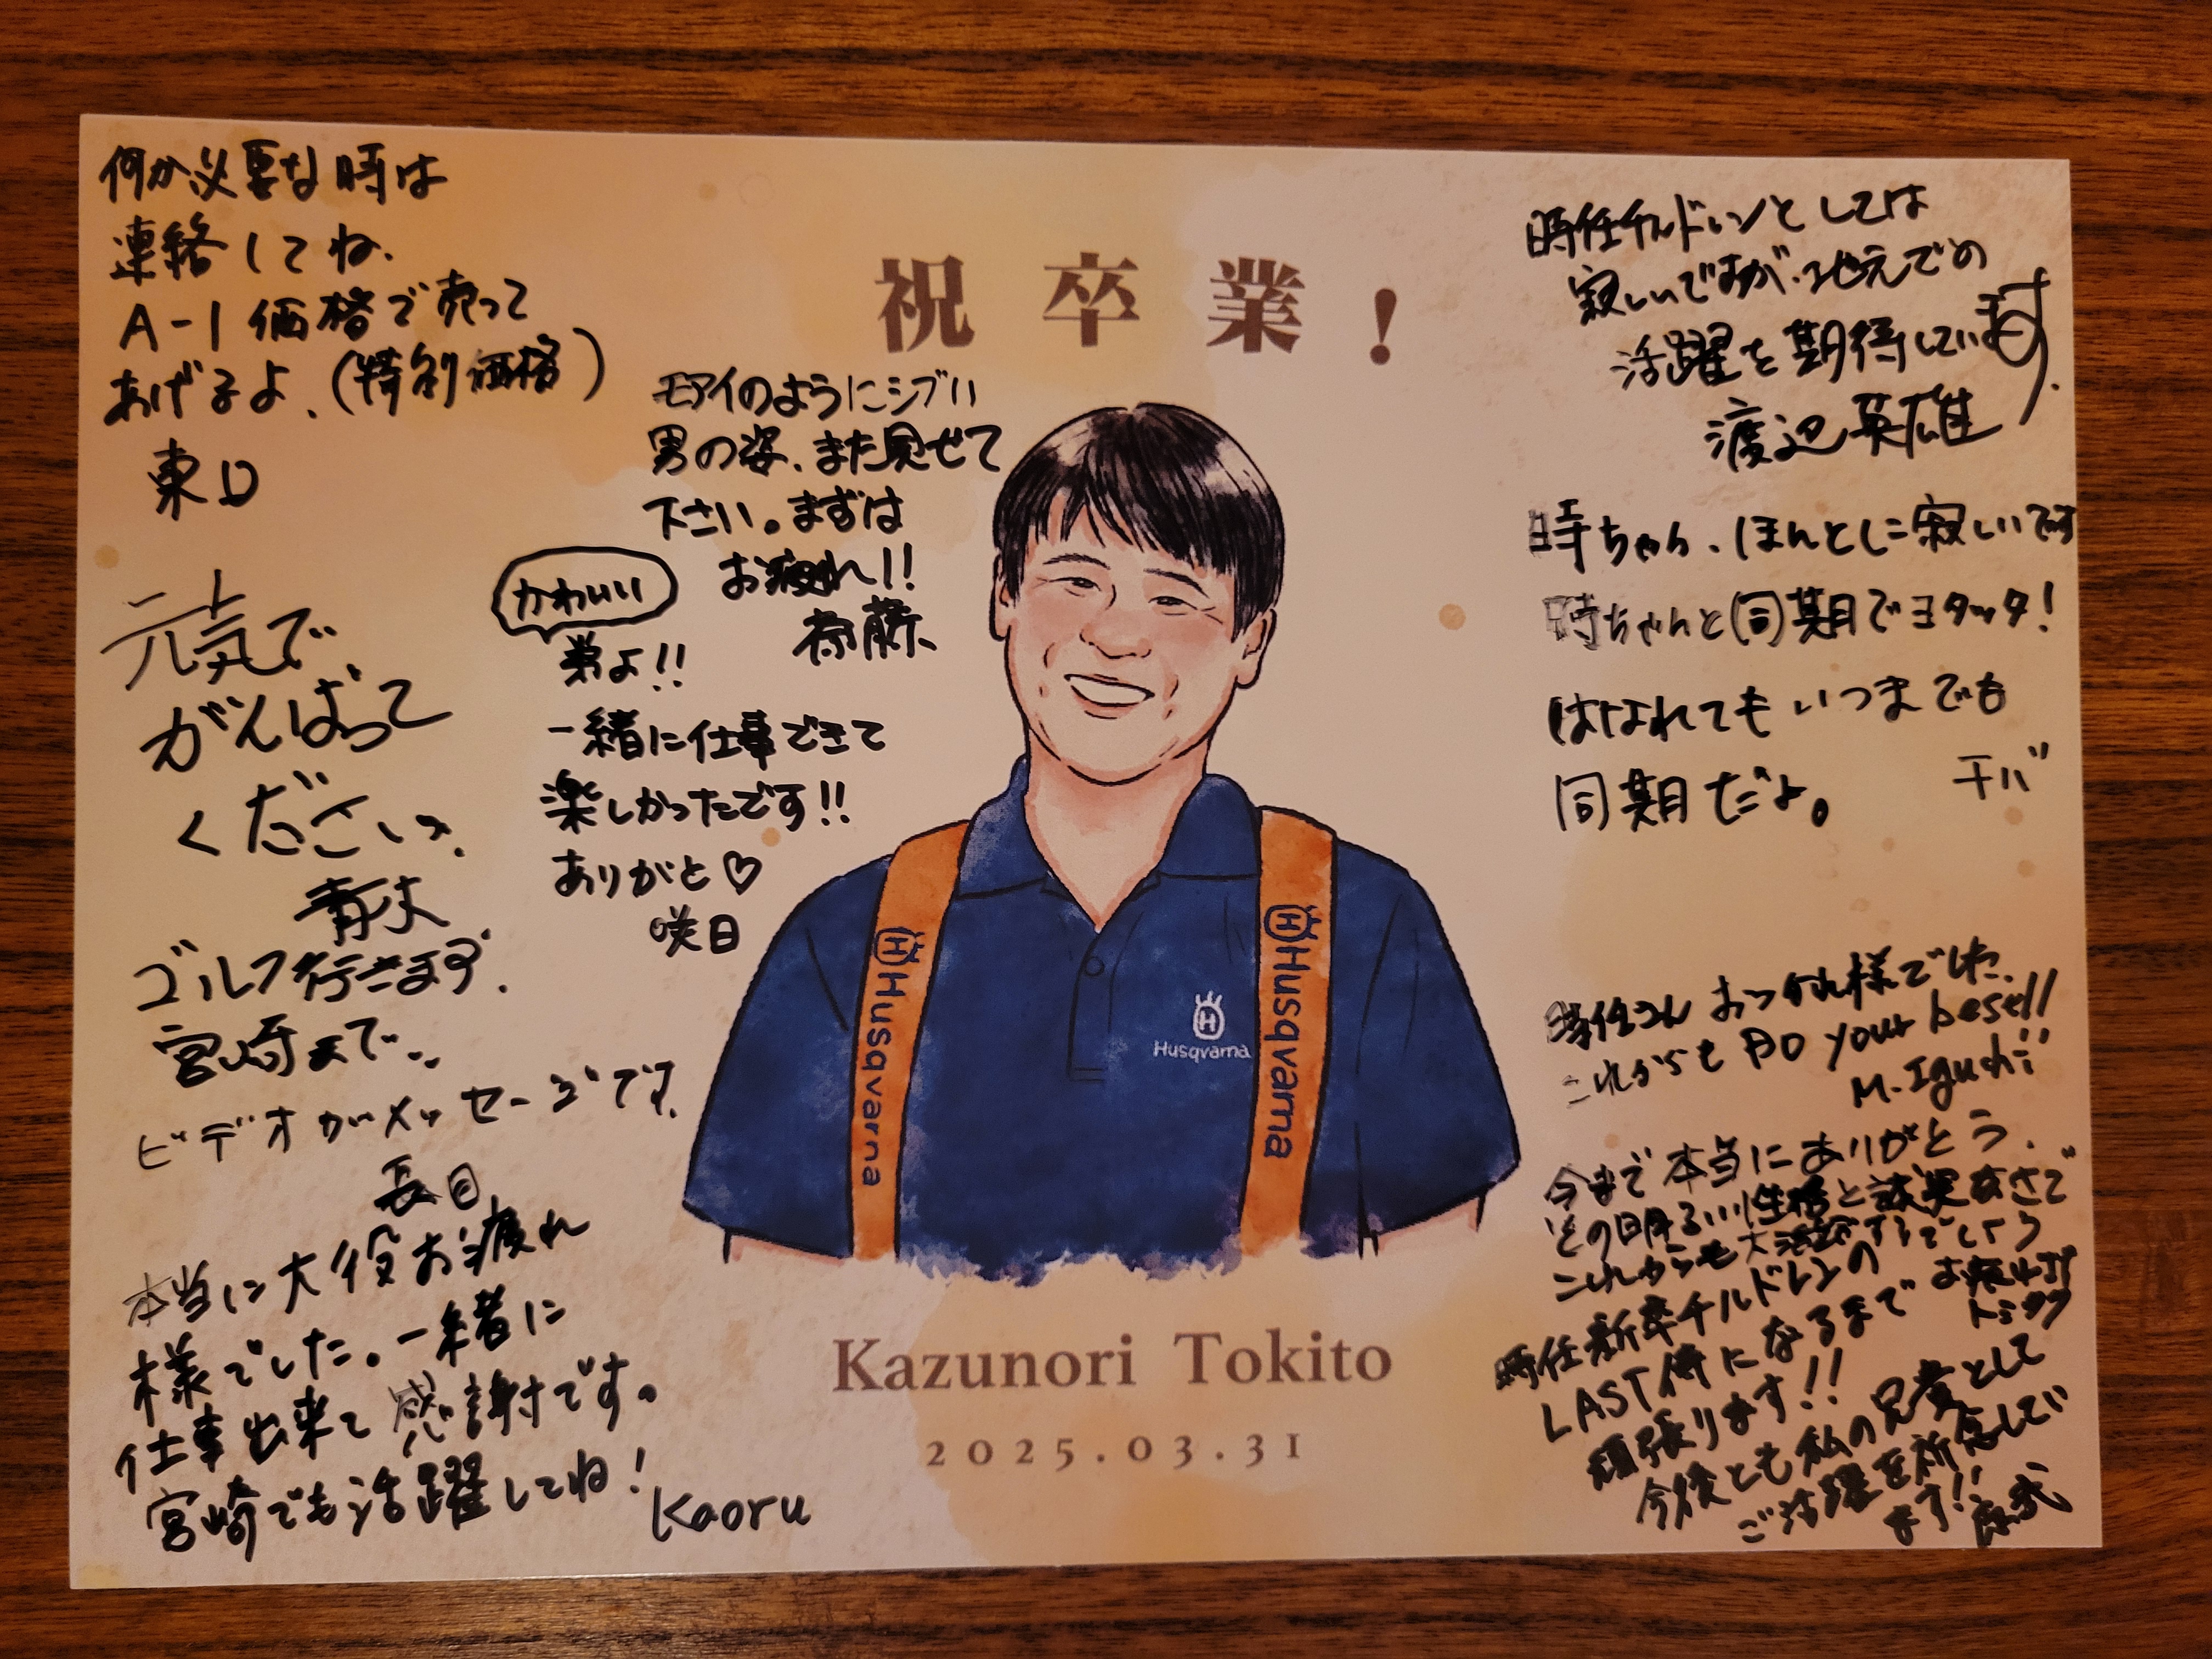 祝 卒 業 !
何か必要な時は
連絡してね、
A-1 価格で売って
あげるよ、(特別価格)
東口
モアイのようにシブい
男の姿、また見せて
下さい。まずは
お疲れ!!
斎藤、
かわいい
弟よ!!
一緒に仕事できて
楽しかったです!!
ありがと♡
咲日
元気で
がんばって
ください、
青木
ゴルフ行きます、
宮崎まで、、
ビデオがメッセージです、
長目
本当に大役お疲れ
様でした。一緒に
仕事出来て感謝です。
宮崎でも活躍してね!
Kaoru
時任チルドレンとしては
寂しいですが、地元での
活躍を期待しています.
渡辺英雄
時ちゃん、ほんとに寂しいです
時ちゃんと同期でヨタッタ!
はなれてもいつまでも
同期だよ。
千バ
時任さん おつかれ様でした、
これからも DO your best!!
M. Iguchi
今まで本当にありがとう、
その明るい性格と誠実さで
これからも大活躍するでしょう
お疲れ
時任新卒チルドレンの
LAST侍になるまで
頑張ります!!
今後とも私の兄貴として
ご活躍を祈念してい
ます!!
Husqvarna
Husqvarna
Husqvarna
Kazunori Tokito
2025.03.31